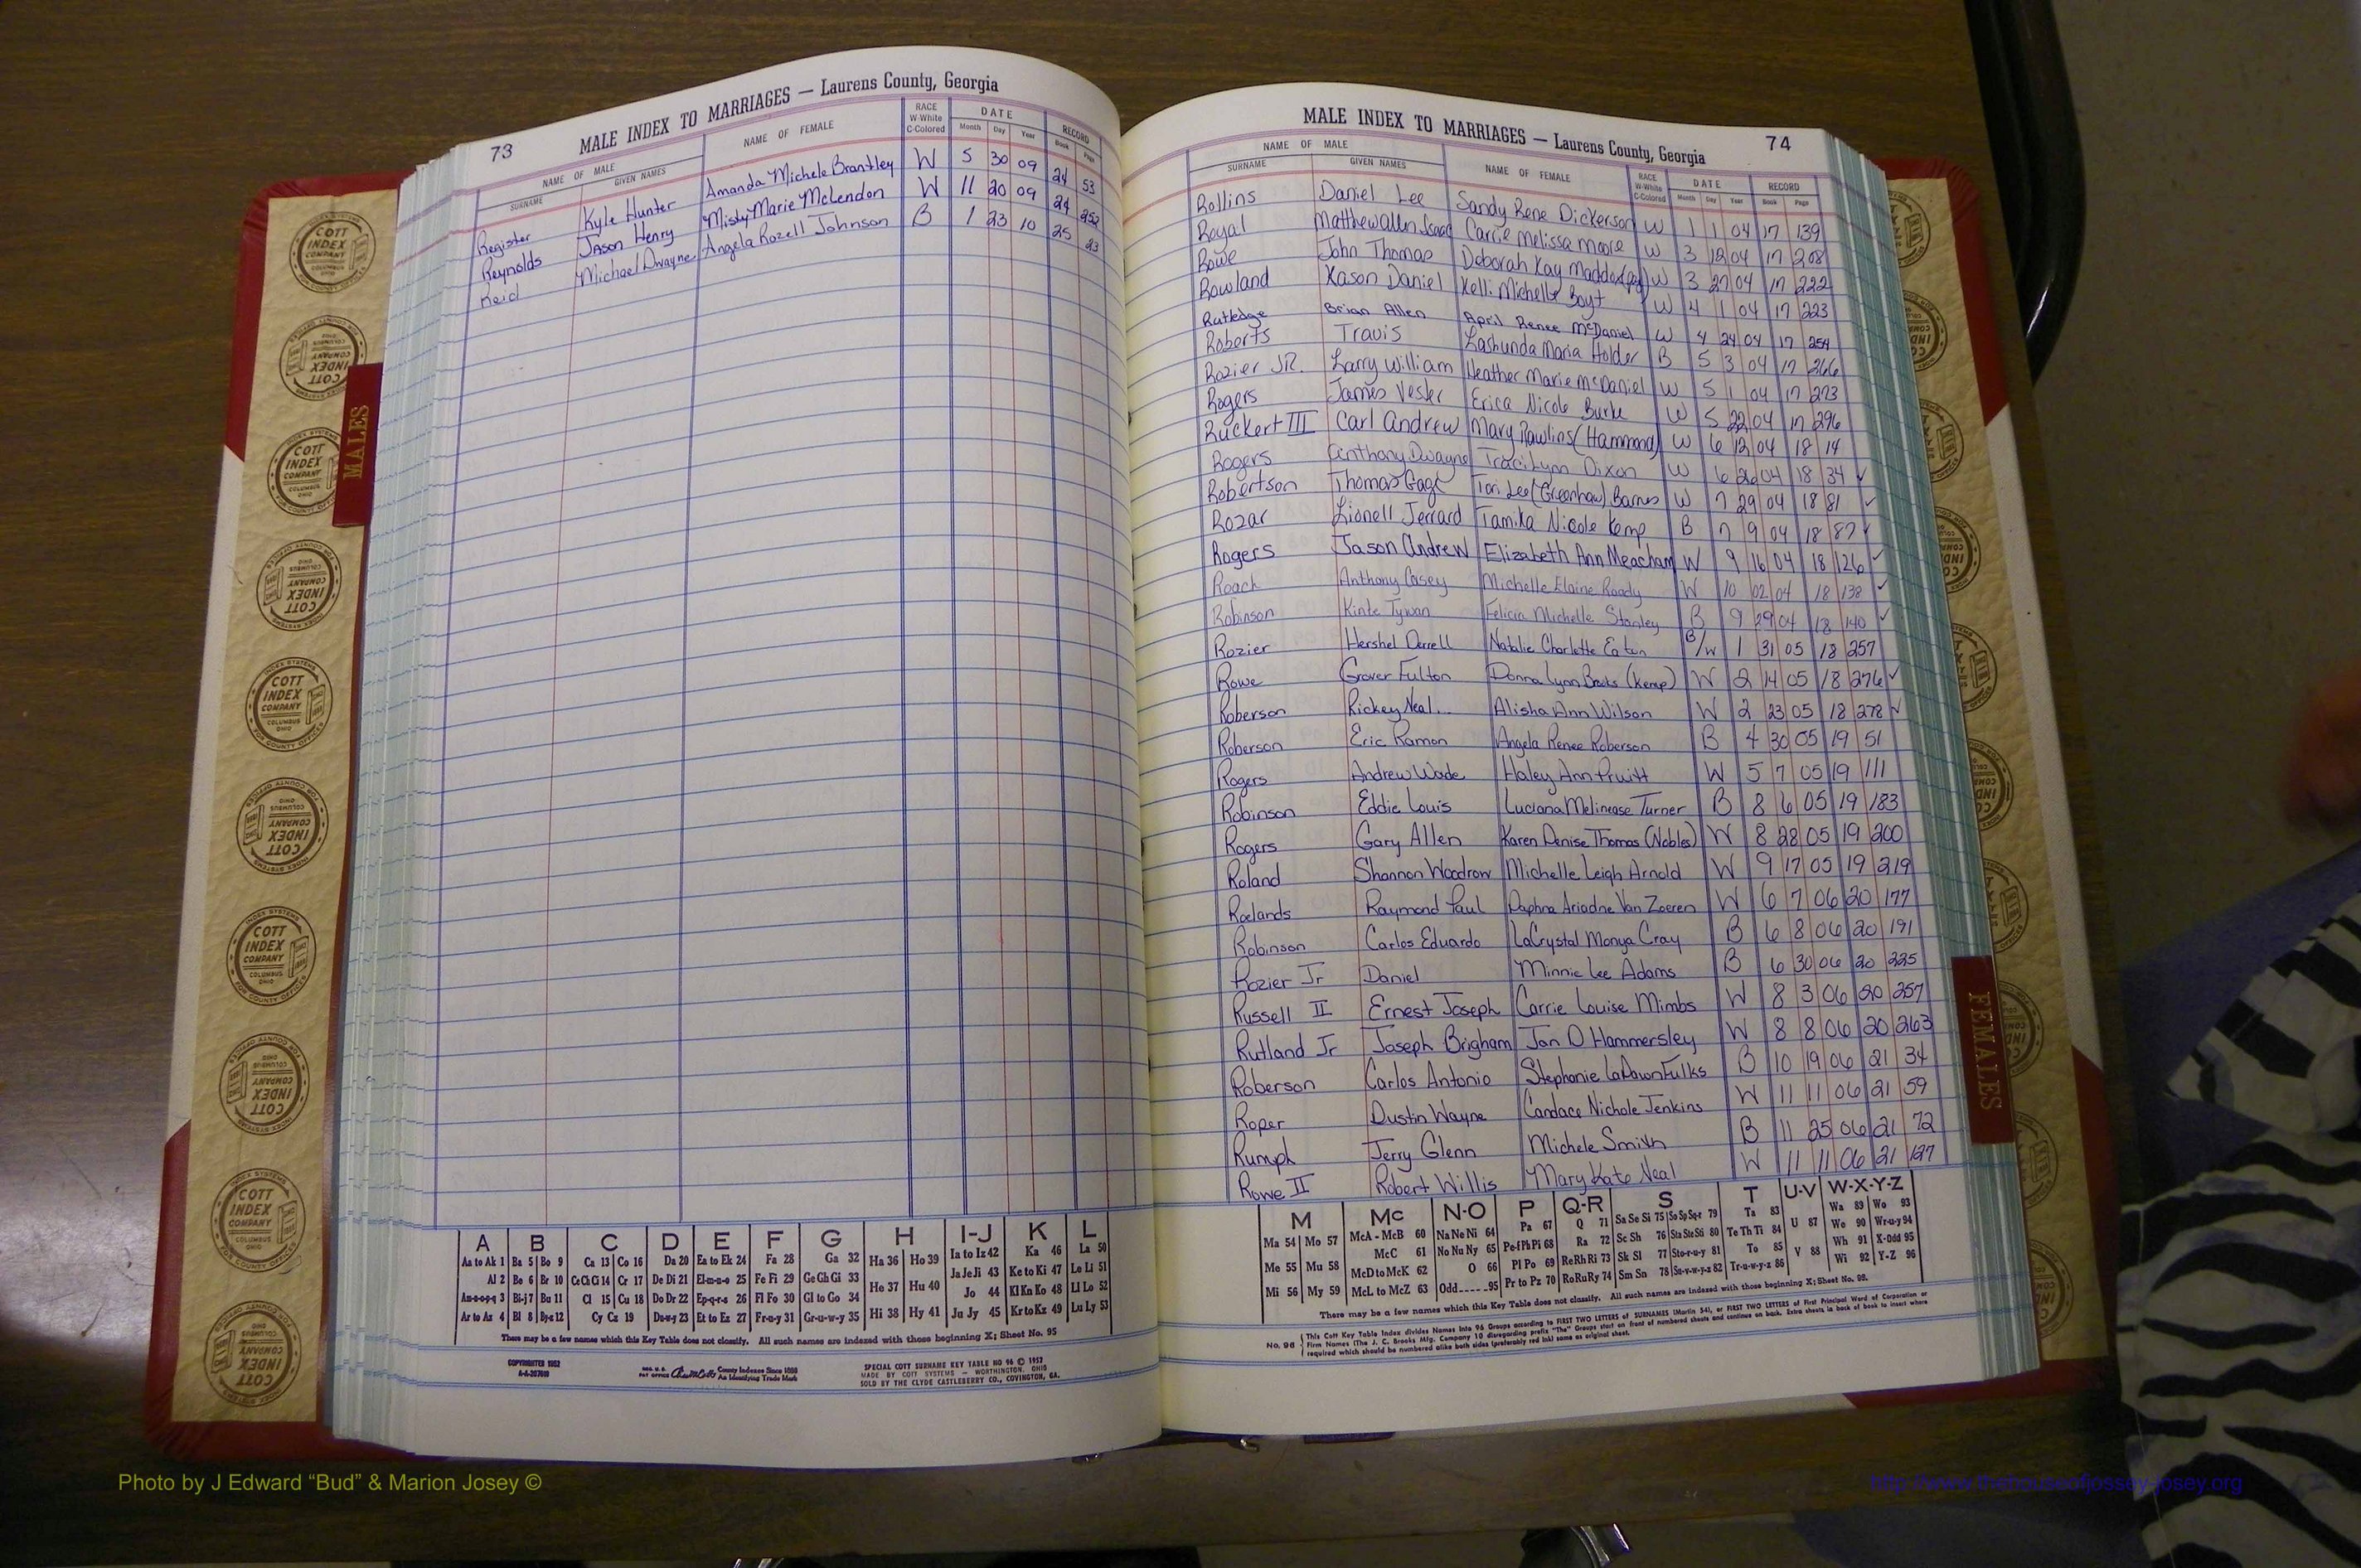 73
MALE INDEX TO MARRIAGES — Laurens County, Georgia
NAME OF MALE NAME OF FEMALE RACE W-White C-Colored DATE RECORD
SURNAME GIVEN NAMES Month Day Year Book Page
Register Kyle Hunter Amanda Michele Brantley W 5 30 09 24 53
Reynolds Jason Henry Misty Marie McLendon W 11 20 09 24 252
Reid Michael Dwayne Angela Rozell Johnson B 1 23 10 25 23
A B C D E F G H I-J K L
Aa to Ak 1 Ba 5 Bo 9 Ca 13 Co 16 Da 20 Ea to Ek 24 Fa 28 Ga 32 Ha 36 Ho 39 Ia to Iz 42 Ka 46 La 50
Al 2 Be 6 Br 10 Ce Ch Ci 14 Cr 17 De Di 21 El-m-n-o 25 Fe Fi 29 Ge Gh Gi 33 He 37 Hu 40 Ja Je Ji 43 Ke to Ki 47 Le Li 51
Am-n-o-p-q 3 Bi-j 7 Bu 11 Cl 15 Cu 18 Do Dr 22 Ep-q-r-s 26 Fl Fo 30 Gl to Go 34 Jo 44 Kl Kn Ko 48 Ll Lo 52
Ar to Az 4 Bl 8 By-z 12 Cy Cz 19 Du-w-y 23 Et to Ez 27 Fr-u-y 31 Gr-u-w-y 35 Hi 38 Hy 41 Ju Jy 45 Kr to Kz 49 Lu Ly 53
There may be a few names which this Key Table does not classify. All such names are indexed with those beginning X; Sheet No. 95
COPYRIGHTED 1952
County Indexes Since 1888
An Identifying Trade Mark
SPECIAL COTT SURNAME KEY TABLE NO 96 © 1952
MADE BY COTT SYSTEMS — WORTHINGTON, OHIO
SOLD BY THE CLYDE CASTLEBERRY CO., COVINGTON, GA.
MALE INDEX TO MARRIAGES — Laurens County, Georgia
74
NAME OF MALE NAME OF FEMALE RACE W-White C-Colored DATE RECORD
SURNAME GIVEN NAMES Month Day Year Book Page
Rollins Daniel Lee Sandy Rene Dickerson W 1 1 04 17 139
Royal Matthew Allen Isaac Carrie Melissa Moore W 3 12 04 17 208
Rowe John Thomas Deborah Kay Maddox W 3 27 04 17 222
Rowland Kason Daniel Kelli Michelle Boyt W 4 1 04 17 223
Rutledge Brian Allen April Renee McDaniel W 4 24 04 17 254
Roberts Travis Lashunda Maria Holder B 5 3 04 17 266
Rozier JR. Larry William Heather Marie McDaniel W 5 1 04 17 273
Rogers James Vester Erica Nicole Burke W 5 22 04 17 296
Ruckert III Carl Andrew Mary Rawlins (Hammond) W 6 12 04 18 14
Rogers Anthony Dwayne Traci Lynn Dixon W 6 26 04 18 34 ✓
Robertson Thomas Gage Tori Lee (Greenhaw) Barnes W 7 29 04 18 81 ✓
Rozar Lionell Jerrard Tamika Nicole Kemp B 7 9 04 18 87 ✓
Rogers Jason Andrew Elizabeth Ann Meacham W 9 16 04 18 126 ✓
Roach Anthony Casey Michelle Elaine Roady W 10 02 04 18 138 ✓
Robinson Kinte Tywan Felicia Michelle Stanley B 9 29 04 18 140 ✓
Rozier Hershel Derrell Natalie Charlotte Eaton B/W 1 31 05 18 257
Rowe Grover Fulton Donna Lynn Brooks (Kemp) W 2 14 05 18 276 ✓
Roberson Rickey Neal Alisha Ann Wilson W 2 23 05 18 278 ✓
Roberson Eric Ramon Angela Renee Roberson B 4 30 05 19 51
Rogers Andrew Wade Haley Ann Pruitt W 5 7 05 19 111
Robinson Eddie Louis Luciana Melinease Turner B 8 6 05 19 183
Rogers Gary Allen Karen Denise Thomas (Nobles) W 8 28 05 19 200
Roland Shannon Woodrow Michelle Leigh Arnold W 9 17 05 19 219
Roelands Raymond Paul Daphne Ariadne Van Zoeren W 6 7 06 20 177
Robinson Carlos Eduardo LaCrystal Monya Cray B 6 8 06 20 191
Rozier Jr Daniel Minnie Lee Adams B 6 30 06 20 225
Russell II Ernest Joseph Carrie Louise Mimbs W 8 3 06 20 257
Rutland Jr Joseph Brigham Jan D Hammersley W 8 8 06 20 263
Roberson Carlos Antonio Stephanie LaDawn Fulks B 10 19 06 21 34
Roper Dustin Wayne Candace Nichole Jenkins W 11 11 06 21 59
Rumph Jerry Glenn Michele Smith B 11 25 06 21 72
Rowe II Robert Willis Mary Kate Neal W 11 11 06 21 127
M Mc N-O P Q-R S T U-V W-X-Y-Z
Ma 54 Mo 57 McA - McB 60 Na Ne Ni 64 Pa 67 Q 71 Sa Se Si 75 So Sp Sq-r 79 Ta 83 U 87 Wa 89 Wo 93
Me 55 Mu 58 McC 61 No Nu Ny 65 Pe-f Ph Pi 68 Ra 72 Sc Sh 76 Sta Ste Sti 80 Te Th Ti 84 We 90 Wr-u-y 94
McD to McK 62 O 66 Pl Po 69 Re Rh Ri 73 Sk Sl 77 Sto-r-u-y 81 To 85 V 88 Wh 91 X-Odd 95
Mi 56 My 59 McL to McZ 63 Odd-----95 Pr to Pz 70 Ro Ru Ry 74 Sm Sn 78 Su-v-w-y-z 82 Tr-u-w-y-z 86 Wi 92 Y-Z 96
There may be a few names which this Key Table does not classify. All such names are indexed with those beginning X; Sheet No. 95.
No. 96 This Cott Key Table Index divides Names into 96 Groups according to FIRST TWO LETTERS of SURNAMES (Martin 54), or FIRST TWO LETTERS of First Principal Word of Corporation or
Firm Names (The J. C. Brooks Mfg. Company 10 disregarding prefix "The" Groups start on front of numbered sheets and continue on back. Extra sheets in back of book to insert where
required which should be numbered alike both sides (preferably red ink) same as original sheet.
MALES
FEMALES
COTT INDEX COMPANY
COLUMBUS OHIO
INDEX SYSTEMS FOR COUNTY OFFICES
Photo by J Edward “Bud” & Marion Josey ©
http://www.thehouseofjossey-josey.org